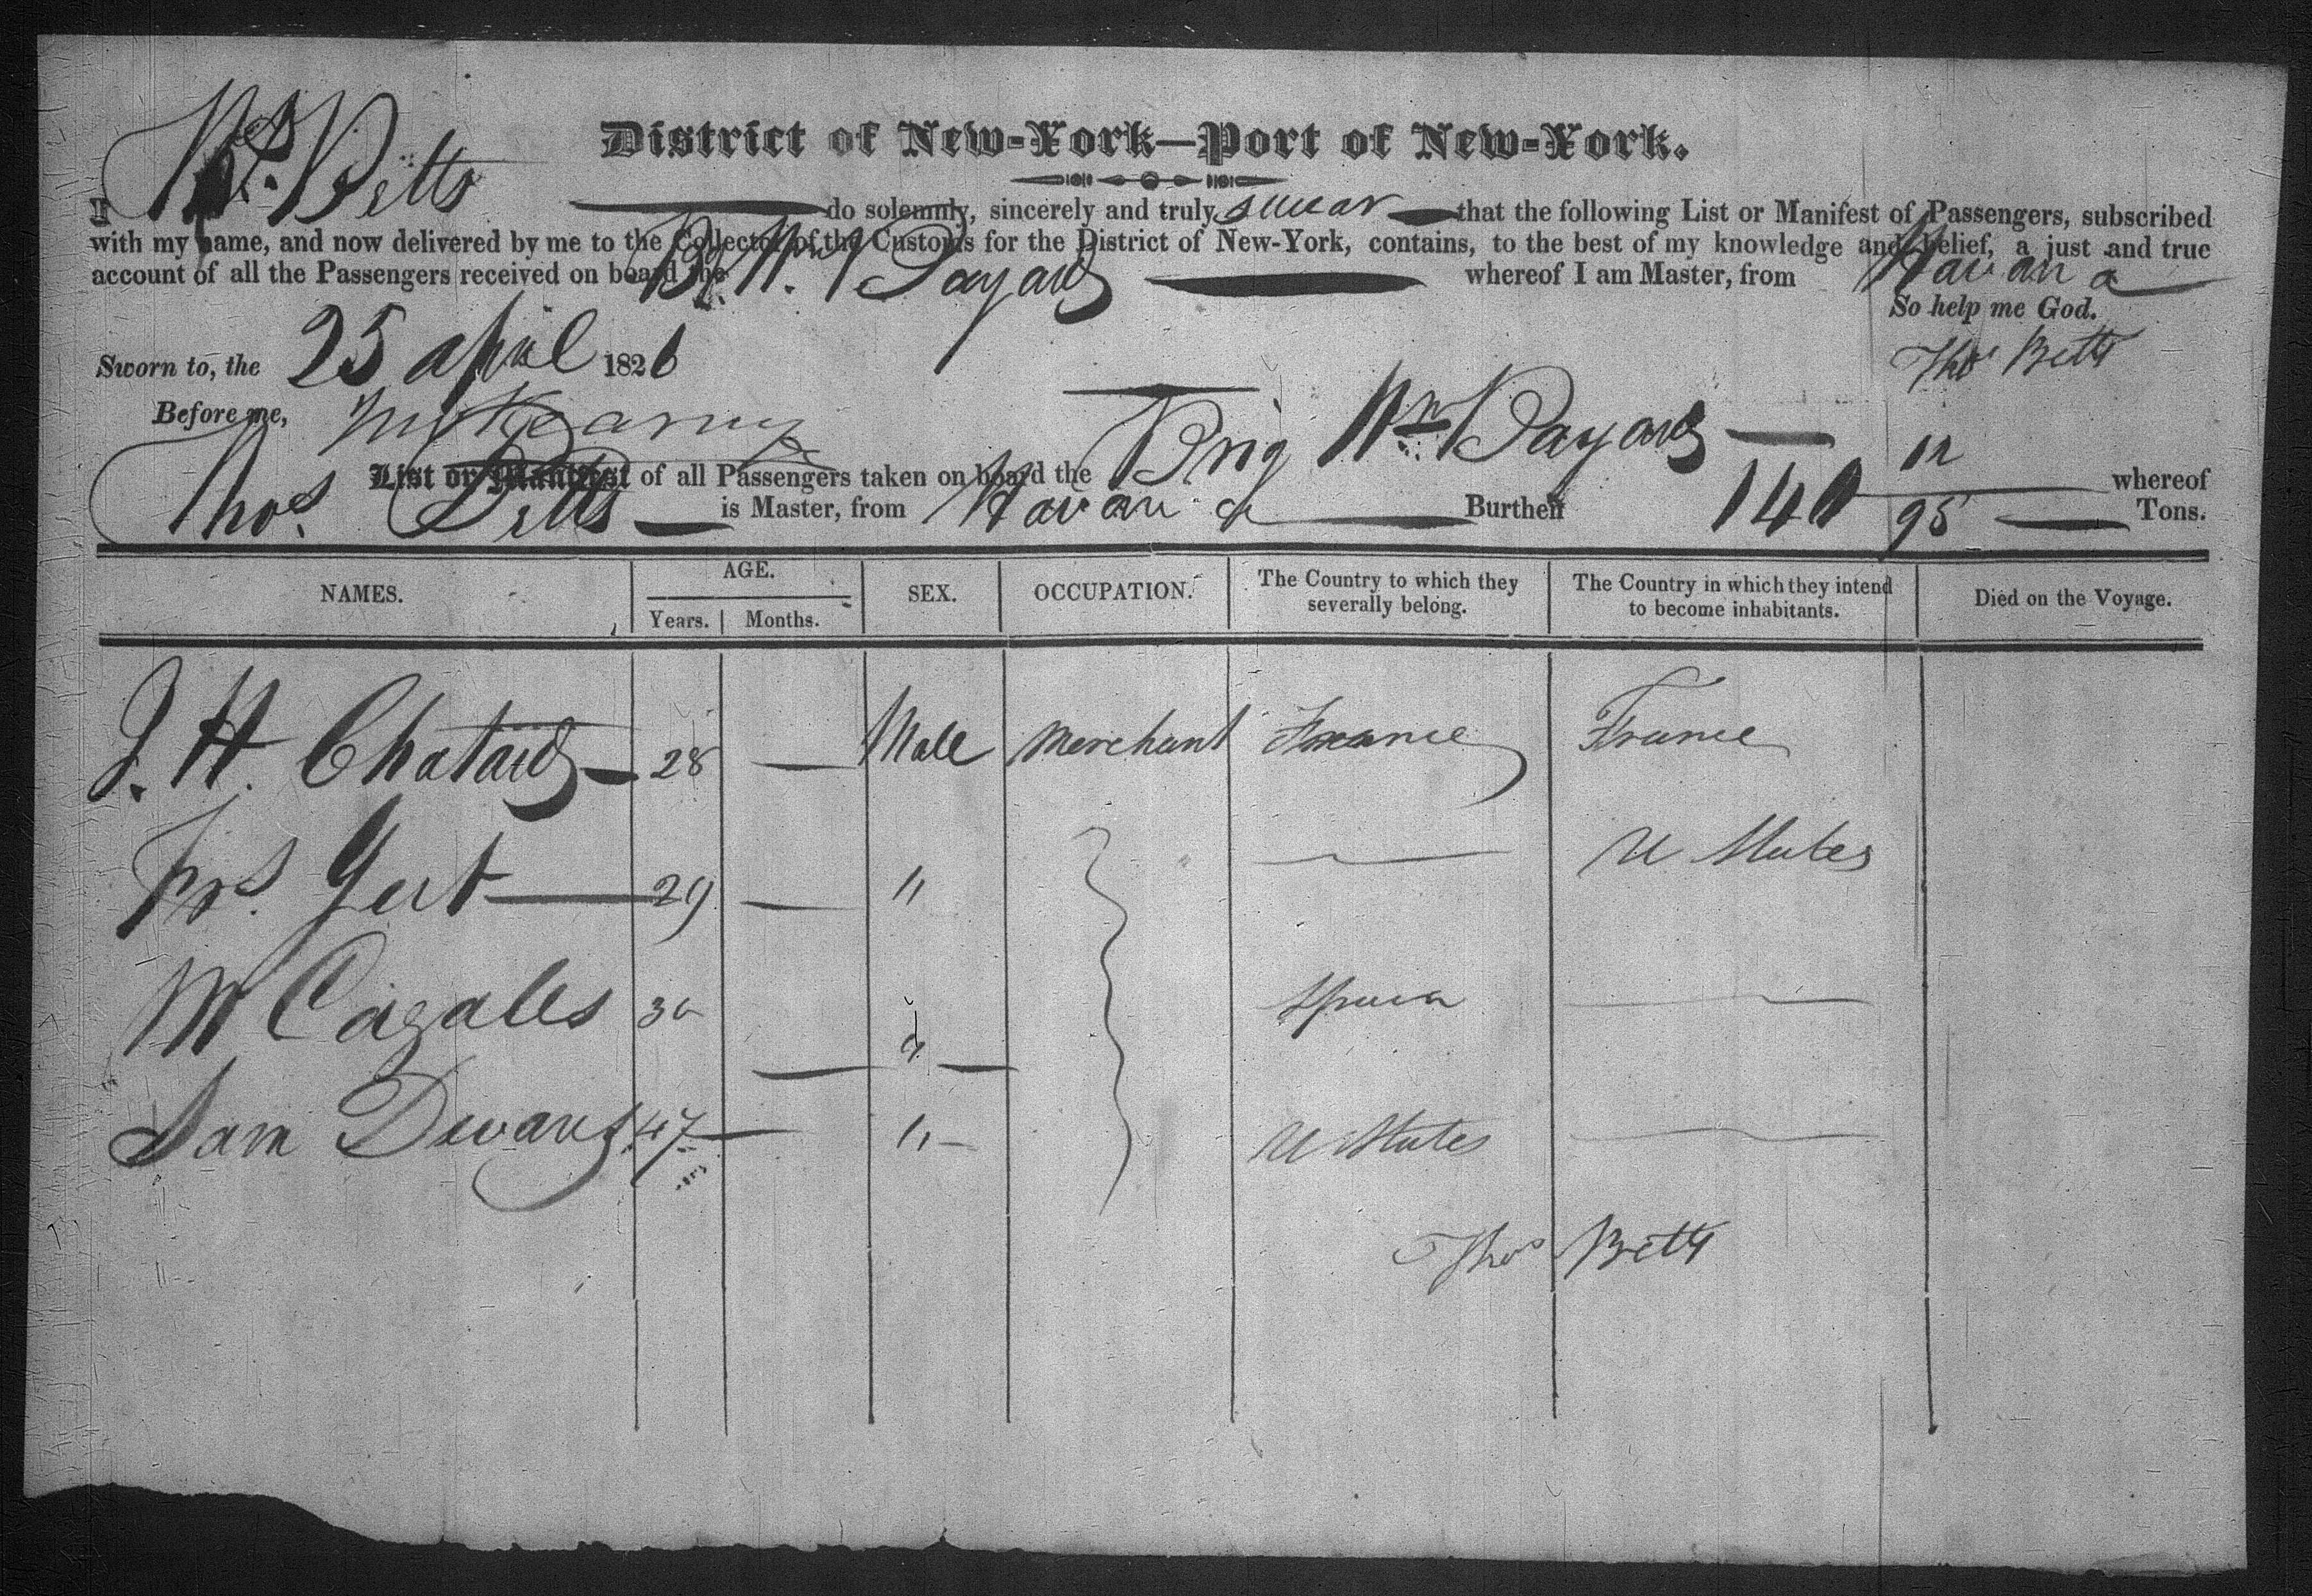 District of New-York—Port of New-York.
I Betts do solemnly, sincerely and truly swear that the following List or Manifest of Passengers, subscribed
with my name, and now delivered by me to the Collector of the Customs for the District of New-York, contains, to the best of my knowledge and belief, a just and true
account of all the Passengers received on board the Br. Wm Bayard whereof I am Master, from Havana
So help me God.
Sworn to, the 25 April 1826
Thos Betts
Before me,
List or Manifest of all Passengers taken on board the Brig Wm Bayard whereof
Thos. Betts is Master, from Havana Burthen 140 12/95 Tons.
NAMES. AGE. SEX. OCCUPATION. The Country to which they severally belong. The Country in which they intend to become inhabitants. Died on the Voyage.
Years. Months.
J. H. Chatard — 28 — Male Merchant France France
Frs. — 29 — " — U States
M Cazales 30 — d — —
Sam 47 — " — U States —
Thos Betts